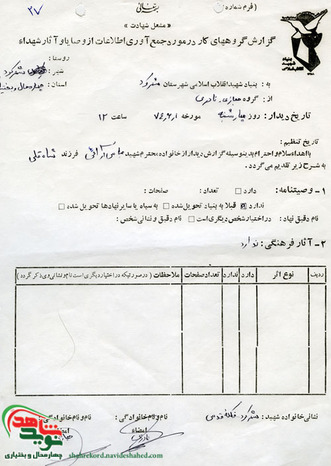 ۲۷
بسمه‌تعالی
(فرم شماره ۱)
« مشعل شهادت »
گزارش گروههای کار در مورد جمع‌آوری اطلاعات از وصایا و آثار شهداء
روستا :
شهر : شهرکرد
استان : چهارمحال و بختیاری
به : بنیاد شهید انقلاب اسلامی شهرستان شهرکرد
از : گروه
تاریخ دیدار : روز چهارشنبه مورخه ساعت ۱۲
تاریخ تنظیم :
با اهداء سلام و احترام بدینوسیله گزارش دیدار از خانواده محترم شهید فرزند
به شرح زیر تقدیم می‌گردد .
۱ - وصیتنامه : دارد تعداد : صفحات :
ندارد قبلا به بنیاد تحویل شده به سپاه یا سایر نهادها تحویل شده
نام دقیق نهاد : در اختیار شخص دیگری است نام دقیق و نشانی شخص :
۲ - آثار فرهنگی : ندارد
ردیف نوع اثر دارد ندارد تعداد صفحات ملاحظات ( در صورتیکه در اختیار دیگری است نام و نشانی وی ذکر گردد )
نشانی خانواده شهید : شهرکرد
نام و نام خانوادگی : نام و نام خانوادگی :
امضاء امضاء
نوید شاهد
چهارمحال و بختیاری
shahrekord.navideshahed.com